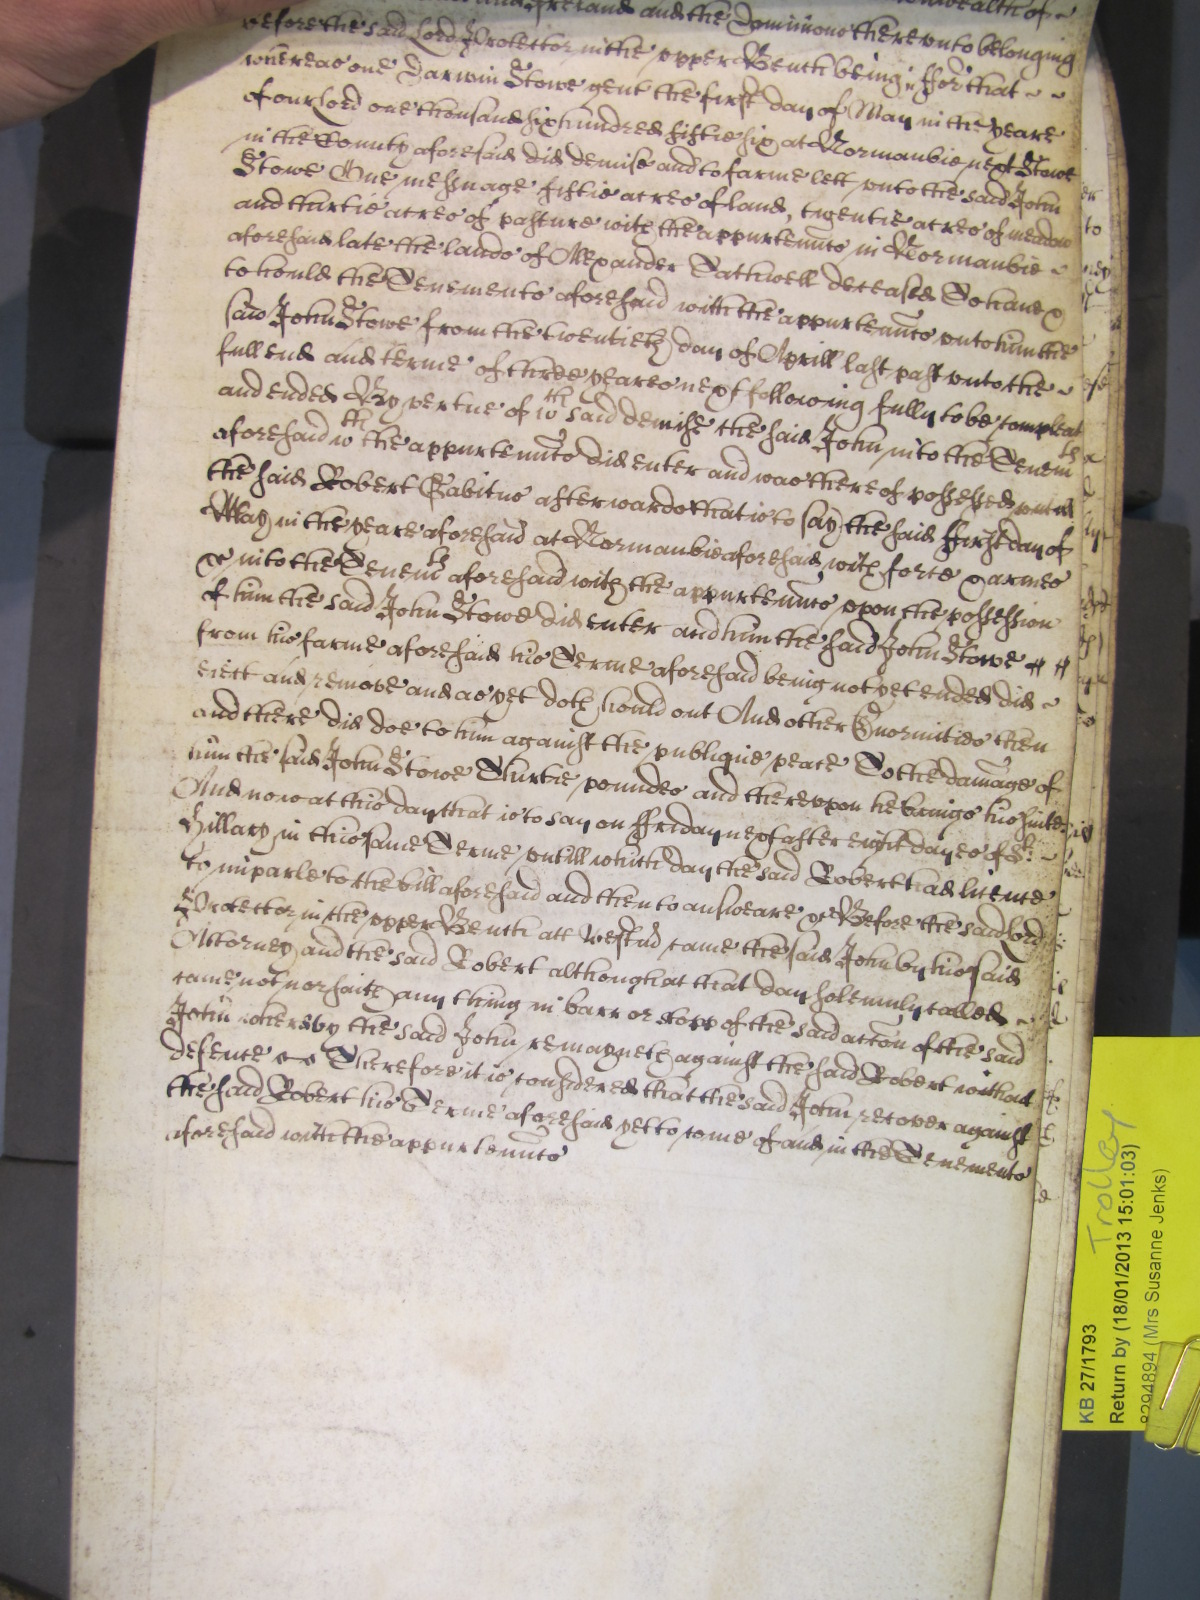 and Ireland and the Dominions thereunto belonging
before the said Lord Protector in the upper Bench being, ffor that
whereas one Darwin Stowe gent the first day of May in the yeare
of our Lord one thousand six hundred fiftie six at Normanbie next Stowe
in the County aforesaid did demise and to farme lett unto the said John
Stowe One messuage fiftie acres of land, twentie acres of meadow
and thirtie acres of pasture with the appurtennts in Normanbie
aforesaid late the lands of Alexander deceased To have &
to hould the Tenements aforesaid with the appurtennts unto him the
said John Stowe from the twentieth day of Aprill last past unto the
full end and terme of three yeares next following fully to be compleat
and ended By vertue of wch said demise the said John into the Tenemts
aforesaid wth the appurtennts did enter and was thereof possessed untill
the said Robert afterwards that is to say the said ffirst day of
May in the yeare aforesaid at Normanbie aforesaid with force & armes
&c into the Tenemts aforesaid with the appurtennts upon the possession
of him the said John Stowe did enter and him the said John Stowe
from his farme aforesaid his Terme aforesaid being not yet ended did
eiect and remove and as yet doth hould out And other Enormities then
and there did doe to him against the publique peace To the damage of
him the said John Stowe Thirtie pounds and thereupon he brings his suite
And now at this day that is to say on ffriday next after eight dayes of St
Hillary in this same Terme untill which day the said Robert had licence
to imparle to the bill aforesaid and then to answeare &c Before the said Lord
Protector in the upper Bench att Westmr came the said John by his said
Attorney and the said Robert although at that day solemnly called
came not nor saith any thing in barr or stopp of the said accon of the said
John whereby the said John remayneth against the said Robert without
defence Therefore it is considered that the said John recover against
the said Robert his Terme aforesaid yet to come of and in the Tenements
aforesaid with the appurtennts
Trolley
KB 27/1793
Return by (18/01/2013 15:01:03)
8294894 (Mrs Susanne Jenks)